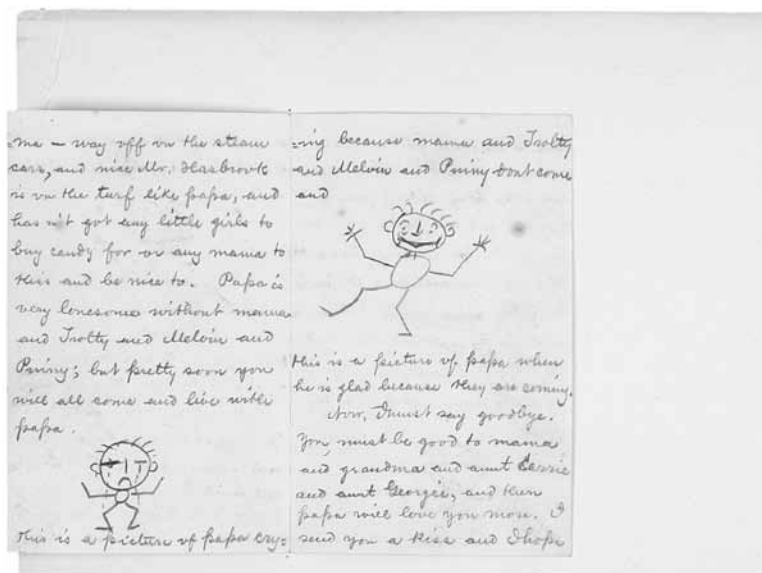 =ma — way off on the steam
cars, and nice Mr. Hasbrook
is on the turf like papa, and
has n't got any little girls to
buy candy for or any mama to
kiss and be nice to. Papa is
very lonesome without mama
and Trotty and Melvin and
Puiny; but pretty soon you
will all come and live with
papa.
This is a picture of papa cry=
=ing because mama and Trotty
and Melvin and Puiny dont come
and
this is a picture of papa when
he is glad because they are coming.
Now, I must say goodbye.
You must be good to mama
and grandma and aunt Carrie
and aunt Georgie, and then
papa will love you more. I
send you a kiss and I hope